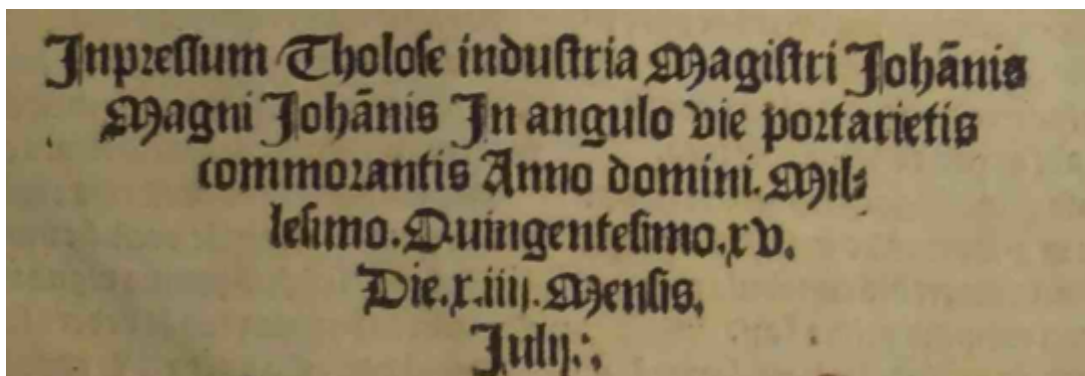 Jnpressum Tholose industria Magistri Johānis
Magni Johānis Jn angulo vie portarietis
commorantis Anno domini. Mil⸗
lesimo. Quingentesimo. xv.
Die. x. iiij. Mensis.
Julij:.